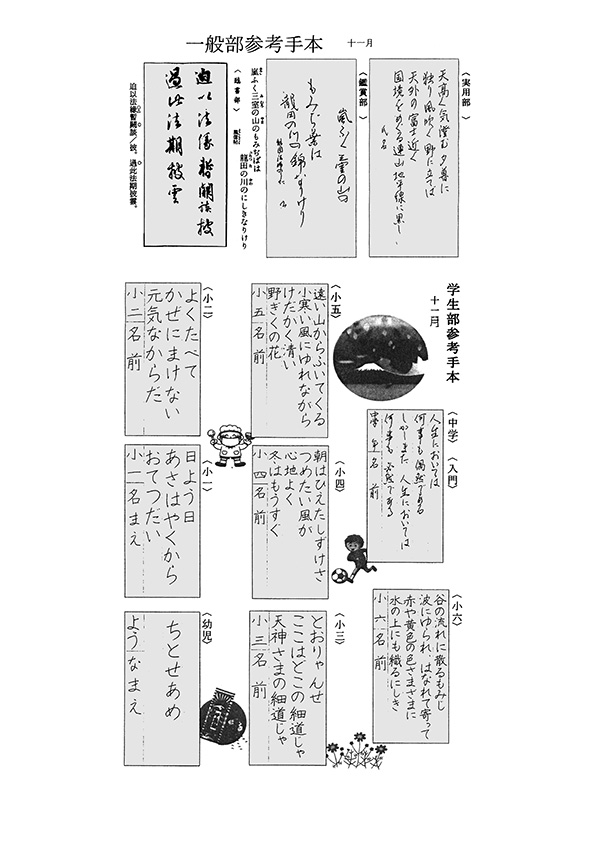 一般部参考手本 十一月
〈実用部〉
天高く気澄む夕暮に
独り風吹く野に立てば
天外の富士近く
国境をめぐる連山地平線に黒し
氏名
〈鑑賞部〉
嵐ふく三室の山の
もみぢ葉は
龍田の川の錦なりけり
嵐ふく三室の山のもみぢばは
龍田の川のにしきなりけり
〈臨書部〉
迫以法縁暫闕談披
過此法期披雲
迫以法縁暫闕談／披。 過此法期披雲。
学生部参考手本
十一月
〈中学〉〈入門〉
人生においては
何事も偶然である
しかしまた人生においては
何事も必然である
中 年 名 前
〈小六〉
谷の流れに散るもみじ
波にゆられ、はなれて寄って
赤や黄色の色さまざまに
水の上にも織るにしき
小六 名前
〈小五〉
遠い山からふいてくる
小寒い風にゆれながら
けだかく清い
野ぎくの花
小五 名前
〈小四〉
朝はひえたしずけさ
つめたい風が
心地よく
冬はもうすぐ
小四 名前
〈小三〉
とおりゃんせ
ここはどこの細道じゃ
天神さまの細道じゃ
小三 名前
〈小二〉
よくたべて
かぜにまけない
元気なからだ
小二 名前
〈小一〉
日よう日
あさはやくから
おてつだい
小一 名まえ
〈幼児〉
ちとせあめ
ようなまえ